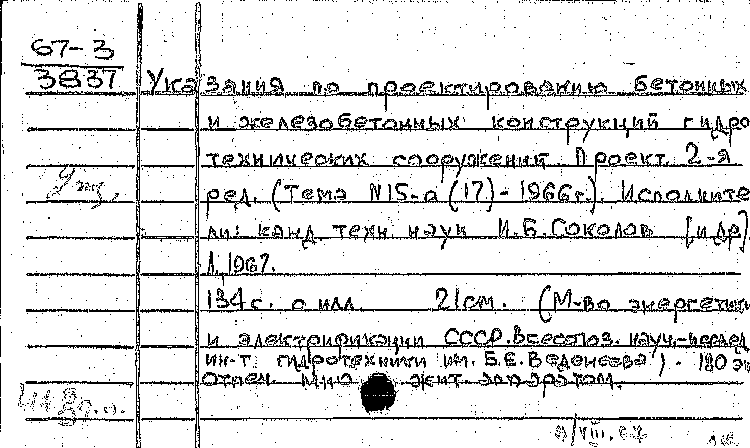 67-3
3837
Указания по проектированию бетонных
и железобетонных конструкций гидро
технических сооружений. Проект 2-я
ред. (Тема N15-а (17)-1966г.). Исполните
ли: канд. техн. наук И.Б. Соколов [и др.]
Л., 1967.
134 с. с илл. 21 см. (М-во энергетики
и электрификации СССР. Всесоюз. науч.-исслед.
ин-т гидротехники им. Б.Е. Веденеева). 180 эк
Отпеч. множит. аппаратом.